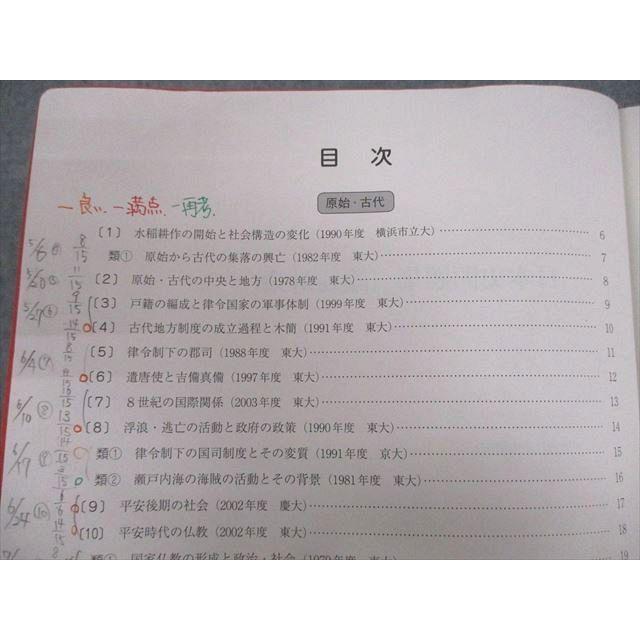 目 次
一良い 一満点 一再考
原始・古代
5/6 8/15 〔1〕 水稲耕作の開始と社会構造の変化(1990年度 横浜市立大) 6
類① 原始から古代の集落の興亡(1982年度 東大) 7
11/15 〔2〕 原始・古代の中央と地方(1978年度 東大) 8
5/27 9/15 〔3〕 戸籍の編成と律令国家の軍事体制(1999年度 東大) 9
14/15 〔4〕 古代地方制度の成立過程と木簡(1991年度 東大) 10
6/4 8/15 〔5〕 律令制下の郡司(1988年度 東大) 11
〔6〕 遣唐使と吉備真備(1997年度 東大) 12
6/10 〔7〕 8世紀の国際関係(2003年度 東大) 13
13/15 〔8〕 浮浪・逃亡の活動と政府の政策(1990年度 東大) 14
6/17 14/15 類① 律令制下の国司制度とその変質(1991年度 京大) 15
類② 瀬戸内海の海賊の活動とその背景(1981年度 東大) 16
6/24 ⑩ 〔9〕 平安後期の社会(2002年度 慶大) 17
14/15 〔10〕 平安時代の仏教(2002年度 東大) 18
類① 国家仏教の形成と政治・社会(1979年度 東大) 19